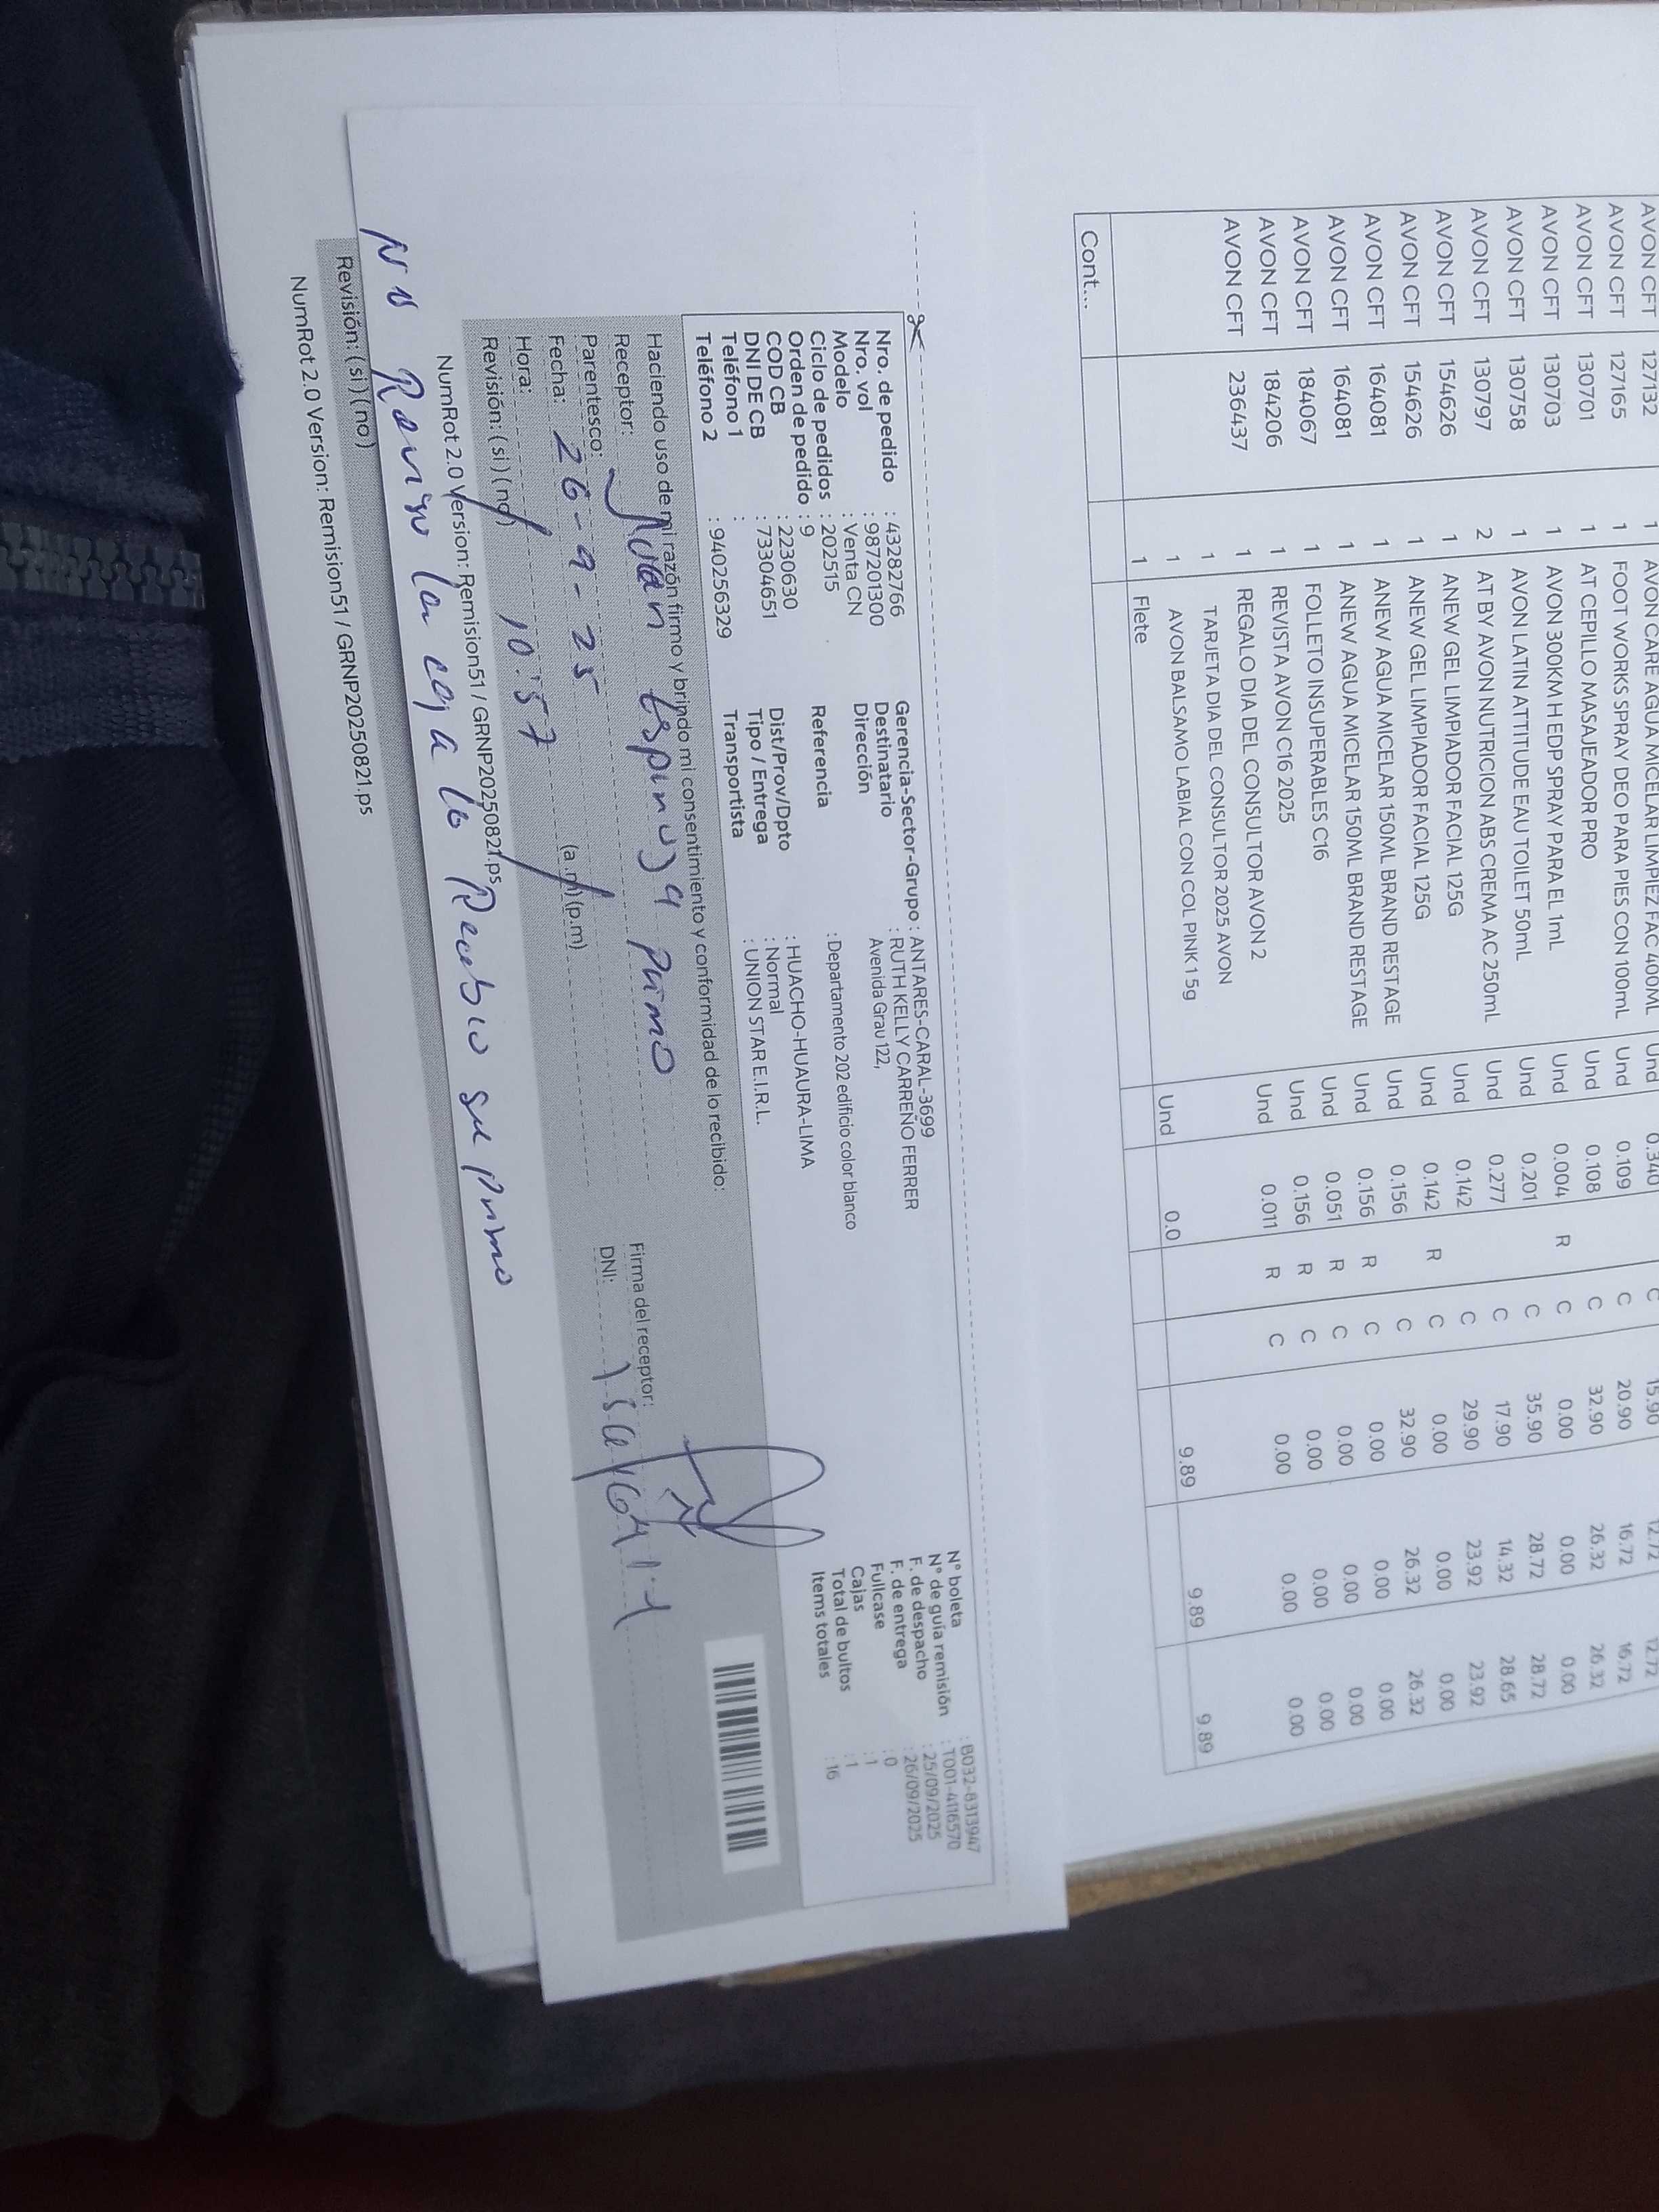 AVON CFT 127132 1 AVON CARE AGUA MICELAR LIMPIEZ FAC 400ML Und 0.340 C 15.90 12.72 12.72
AVON CFT 127165 1 FOOT WORKS SPRAY DEO PARA PIES CON 100mL Und 0.109 C 20.90 16.72 16.72
AVON CFT 130701 1 AT CEPILLO MASAJEADOR PRO Und 0.108 C 32.90 26.32 26.32
AVON CFT 130703 1 AVON 300KM H EDP SPRAY PARA EL 1mL Und 0.004 R C 0.00 0.00 0.00
AVON CFT 130758 1 AVON LATIN ATTITUDE EAU TOILET 50mL Und 0.201 C 35.90 28.72 28.72
AVON CFT 130797 2 AT BY AVON NUTRICION ABS CREMA AC 250mL Und 0.277 C 17.90 14.32 28.65
AVON CFT 154626 1 ANEW GEL LIMPIADOR FACIAL 125G Und 0.142 C 29.90 23.92 23.92
AVON CFT 154626 1 ANEW GEL LIMPIADOR FACIAL 125G Und 0.142 R C 0.00 0.00 0.00
AVON CFT 164081 1 ANEW AGUA MICELAR 150ML BRAND RESTAGE Und 0.156 C 32.90 26.32 26.32
AVON CFT 164081 1 ANEW AGUA MICELAR 150ML BRAND RESTAGE Und 0.156 R C 0.00 0.00 0.00
AVON CFT 184067 1 FOLLETO INSUPERABLES C16 Und 0.051 R C 0.00 0.00 0.00
AVON CFT 184206 1 REVISTA AVON C16 2025 Und 0.156 R C 0.00 0.00 0.00
AVON CFT 236437 1 REGALO DIA DEL CONSULTOR AVON 2 Und 0.011 R C 0.00 0.00 0.00
1 TARJETA DIA DEL CONSULTOR 2025 AVON
1 AVON BALSAMO LABIAL CON COL PINK 1 5g
1 Flete Und 0.0 9.89 9.89 9.89
Cont...
Nro. de pedido : 43282766 Gerencia-Sector-Grupo : ANTARES-CARAL-3699 N° boleta : B032-8313947
Nro. vol : 987201300 Destinatario : RUTH KELLY CARREÑO FERRER N° de guía remisión : T001-4116570
Modelo : Venta CN Dirección Avenida Grau 122, F. de despacho : 25/09/2025
Ciclo de pedidos : 202515 F. de entrega : 26/09/2025
Orden de pedido : 9 Referencia : Departamento 202 edificio color blanco Fullcase : 0
COD CB : 2230630 Cajas : 1
DNI DE CB : 73304651 Dist/Prov/Dpto : HUACHO-HUAURA-LIMA Total de bultos : 1
Teléfono 1 : Tipo / Entrega : Normal Items totales : 16
Teléfono 2 : 940256329 Transportista : UNION STAR E.I.R.L.
Haciendo uso de mi razón firmo y brindo mi consentimiento y conformidad de lo recibido:
Receptor: Juan Espinoza primo Firma del receptor:
Parentesco: DNI:
Fecha: 26-9-25
Hora: 10:57 (a.m) (p.m)
Revisión: (si) (no)
NumRot 2.0 Version: Remision51 / GRNP20250821.ps
No Reviso la caja lo Recibio su primo
Revisión: (si) (no)
NumRot 2.0 Version: Remision51 / GRNP20250821.ps